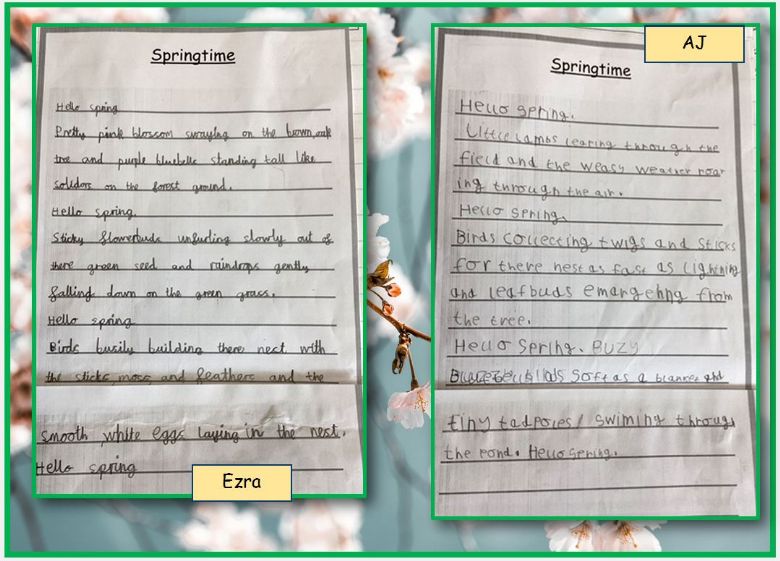 Springtime
Hello spring
Pretty pink blossom swaying on the brown, oak
tree and purple bluebells standing tall like
soliders on the forest ground.
Hello spring.
Sticky flowerbuds unfurling slowly out of
there green seed and raindrops gently
falling down on the green grass.
Hello spring
Birds busily building there nest with
the sticks, moss and feathers and the
smooth white eggs laying in the nest.
Hello spring
Ezra
AJ
Springtime
Hello spring.
Little lambs leaping through the
field and the weasy weather roar
ing through the air.
Hello spring.
Birds collecting twigs and sticks
for there nest as fast as lightning
and leafbuds emargehng from
the tree.
Hello spring. BUZY
soft as a blanket and
tiny tadpoles swiming through
the pond. Hello spring.